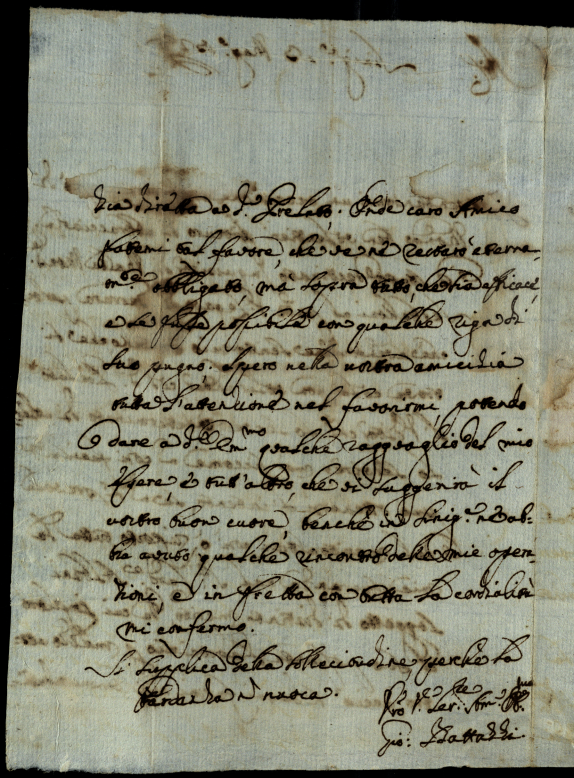 sia diretta a d.º Prelato. Onde caro Amico
fatemi tal favore, che ve ne restarò eterna-
m.te obbligato, mà sopra tutto, che sia efficace,
e se fusse possibile con qualche riga di
suo pugno; spero nella vostra amicizia
tutta l'attenzione nel favorirmi, potendo
dare a d.º Em.mo qualche ragguaglio del mio
essere, è tutt'altro, che vi suggerirà il
vostro buon cuore, benche in Sinig.a ne ab-
bia avuto qualche rincontro delle mie opera-
zioni, è in fretta con tutta la cordialità
mi confermo.
Si supplica della sollecitudine perche la
tardanza n̄ nuoca.
Gio: